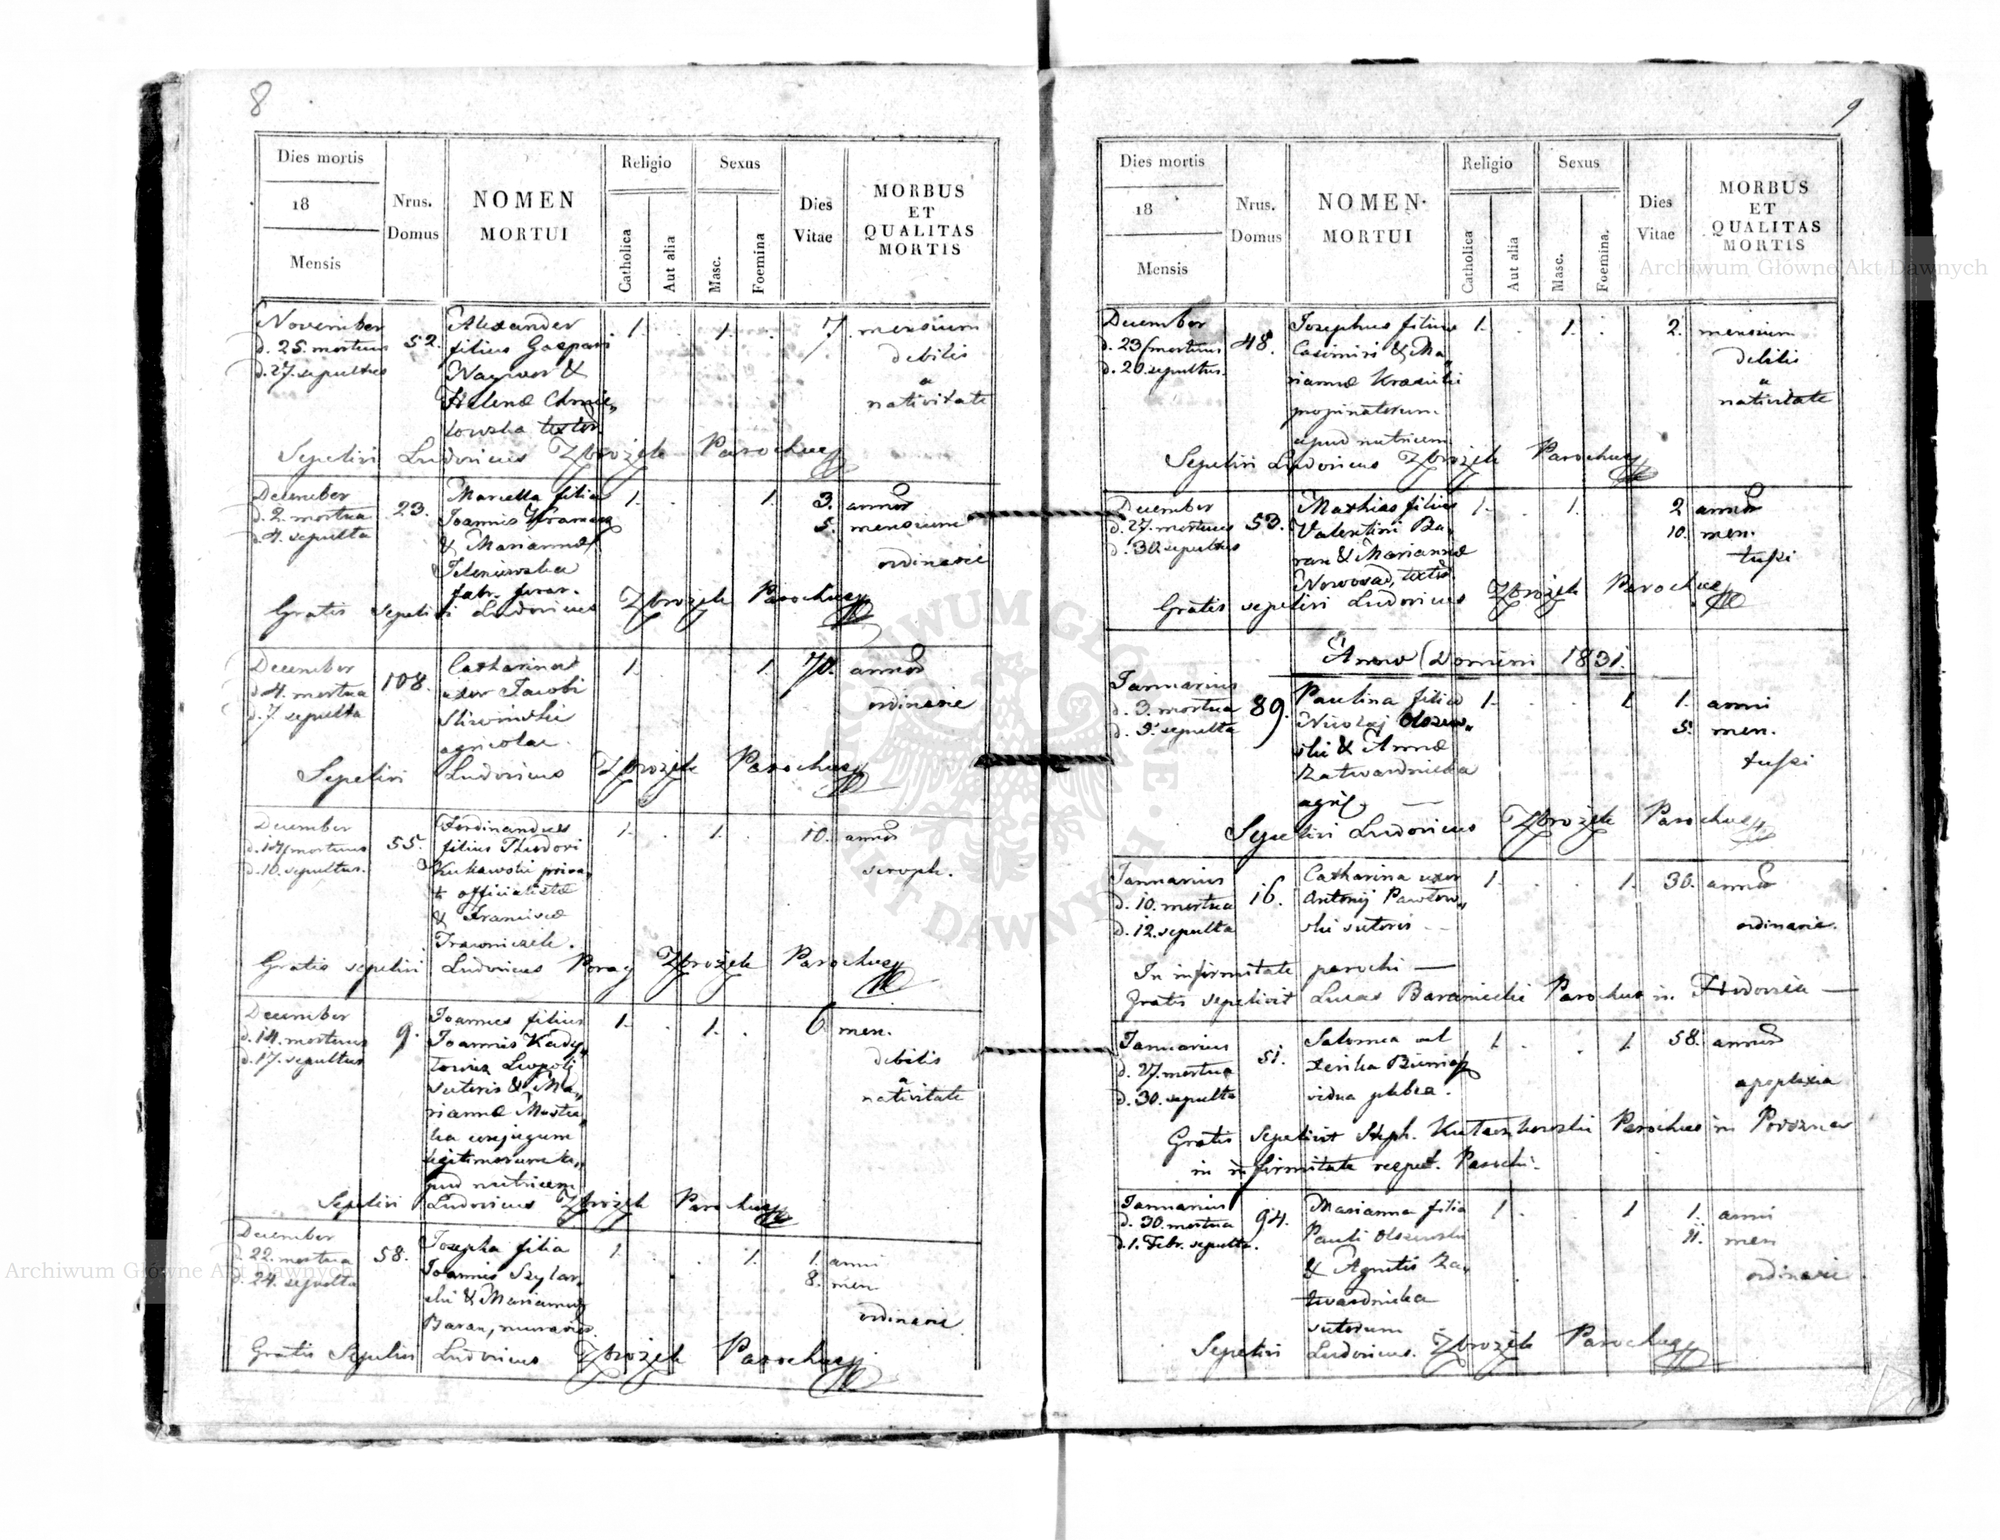 8
Dies mortis
18
Mensis
Nrus.
Domus
NOMEN
MORTUI
Religio
Catholica
Aut alia
Sexus
Masc.
Foemina
Dies
Vitae
MORBUS
ET
QUALITAS
MORTIS
November
d. 25. mortuus
d. 27. sepultus
52.
Alexander
filius Gaspari
&
Helenæ Chmie„
lowska textor.
1.
1.
7.
mensium
debilis
a
nativitate
Sepelivi Ludovicus Zbrożek Parochus
December
d. 2. mortua
d. 4. sepulta
23.
Marcella filia
Joannis
& Mariannæ
fabr. ferar.
1.
1.
3. annor
5. mensium
ordinarie
Gratis sepelivi Ludovicus Zbrożek Parochus
December
d. 4. mortua
d. 7. sepulta
108.
Catharina
uxor Jacobi
Sliwinski
agricolae.
1.
1.
70. annor
ordinarie
Sepelivi Ludovicus Zbrożek Parochus
December
mortuus
d. 10. sepultus.
55.
Ferdinandus
filius Theodori
Kukawski priva„
t officialistæ
& Franciscæ
Trawniczek.
1.
1.
10. annor
scroph.
Gratis sepelivi Ludovicus Poray Zbrożek Parochus
December
d. 14. mortuus
d. 17. sepultus
9.
Joannes filius
Joannis Kady„
Leopoli
sutoris & Ma„
riannæ
conjugum
legitimorum a„
pud nutricem
1.
1.
6 men.
debilis
a
nativitate
Sepelivi Ludovicus Zbrożek Parochus
December
d. 22. mortua
d. 24. sepulta
58.
Josepha filia
Joannis Szylar„
ski & Mariannæ
Baran, murarior.
1.
1.
1. anni
8. men
ordinarie
Gratis Sepelivi Ludovicus Zbrożek Parochus
9
Dies mortis
18
Mensis
Nrus.
Domus
NOMEN
MORTUI
Religio
Catholica
Aut alia
Sexus
Masc.
Foemina.
Dies
Vitae
MORBUS
ET
QUALITAS
MORTIS
December
d. 23 mortuus
d. 26. sepultus.
48.
Josephus filius
Casimiri & Ma„
riannæ Krasicki
propinatorum
apud nutricem
1.
1.
2. mensium
debilis
a
nativitate
Sepelivi Ludovicus Zbrożek Parochus
December
d. 27. mortuus
d. 30. sepultus
53.
Mathias filius
Valentini Ba„
ran & Mariannæ
Nowosad, textor.
1.
1.
2 annor
10. men.
tussi
Gratis sepelivi Ludovicus Zbrożek Parochus
Anno Domini 1831.
Januarius
d. 3. mortua
d. 5. sepulta
89.
Paulina filia
Nicolaj Olszew„
ski & Annæ
Zatwardnicka
agric.
1.
1
1. anni
5. men.
tussi
Sepelivi Ludovicus Zbrożek Parochus
Januarius
d. 10. mortua
d. 12. sepulta
16.
Catharina uxor
Antonij Pawłow„
ski sutoris
1.
1.
36. annor
ordinarie.
In infirmitate parochi —
Gratis sepelivit Lucas Baraniecki Parochus in Hodowica —
Januarius
d. 27. mortua
d. 30. sepulta
51.
Salomea
vidua plebea.
1.
1.
58. annor
apoplexia
Gratis sepelivit Steph. Parochus in
in infirmitate respect. Parochi.
Januarius
d. 30. mortua
d. 1. Febr. sepulta.
94.
Marianna filia
Pauli Olszewski
& Agnetis Za„
twardnicka
sutorum
1.
1
1. anni
11. men
ordinarie.
Sepelivi Ludovicus. Zbrożek Parochus
ARCHIWUM GŁÓWNE · AKT DAWNYCH ·
Archiwum Główne Akt Dawnych
Archiwum Główne Akt Dawnych